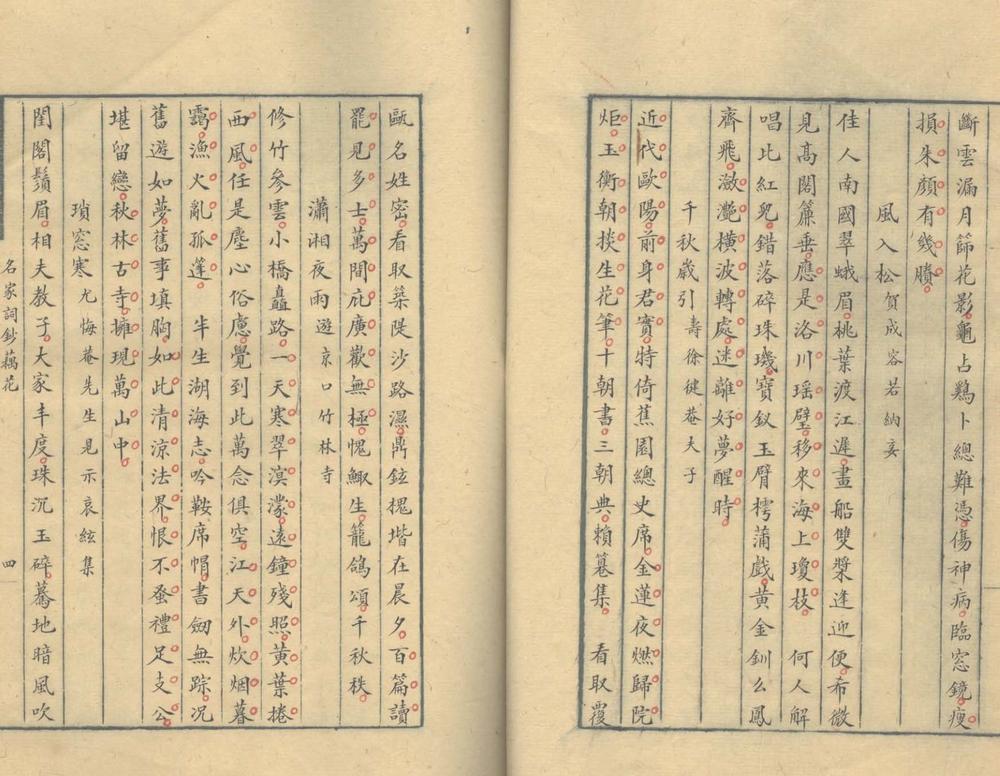 斷雲漏月篩花影龜占鷄卜總難憑傷神病臨窓鏡瘦
損朱顏有幾賸
風入松賀成容若納妾
佳人南國翠蛾眉桃葉渡江遲畫船雙槳逢迎便希微
見高閣簾垂應是洛川瑶璧移來海上瓊枝 何人解
唱此紅兒錯落碎珠璣寶釵玉臂樗蒲戲黃金釧么鳳
齊飛瀲灔橫波轉處迷離好夢醒時
千秋歲引壽徐健庵夫子
近代歐陽前身君實特倚蕉園總史席金蓮夜燃歸院
炬玉衡朝掞生花筆十朝書三朝典賴篹集 看取覆
甌名姓密看取築隄沙路濕鼎鉉槐堦在晨夕百篇讀
罷見多士萬間庇廣歡無極愧鯫生籠鴿頌千秋秩
瀟湘夜雨遊京口竹林寺
修竹參雲小橋矗路一天寒翠溟濛遠鐘殘照黃葉捲
西風任是塵心俗慮覺到此萬念俱空江天外炊烟暮
靄漁火亂孤篷 半生湖海志吟鞍席帽書劒無踪况
舊遊如夢舊事填胸如此清涼法界恨不蚤禮足支公
堪留戀秋林古寺擁現萬山中
瑣窓寒尤悔菴先生見示哀絃集
閨閣鬚眉相夫教子大家丰度珠沉玉碎驀地暗風吹
名家詞鈔藕花 四